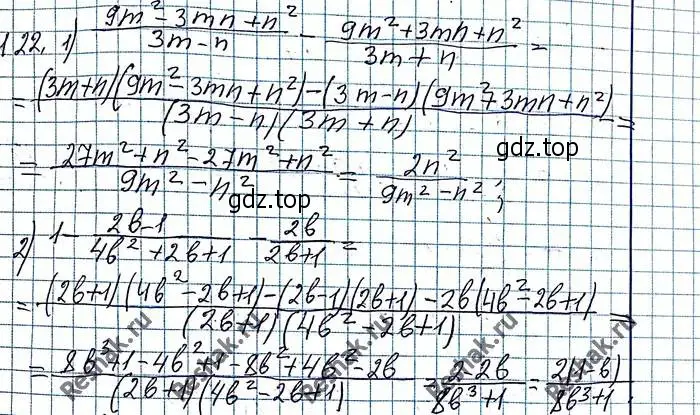 1.22. 1) (9m² - 3mn + n²)/(3m - n) - (9m² + 3mn + n²)/(3m + n) =
= ((3m + n)(9m² - 3mn + n²) - (3m - n)(9m² + 3mn + n²))/((3m - n)(3m + n)) =
= (27m² + n² - 27m² + n²)/(9m² - n²) = 2n²/(9m² - n²);
гдз.top
гдз.top
2) 1 - (2b - 1)/(4b² + 2b + 1) - 2b/(2b + 1) =
= ((2b + 1)(4b² - 2b + 1) - (2b - 1)(2b + 1) - 2b(4b² - 2b + 1))/((2b + 1)(4b² - 2b + 1)) =
= (8b³ + 1 - 4b² + 1 - 8b² + 4b² - 2b)/((2b + 1)(4b² - 2b + 1)) = (2 - 2b)/(8b³ + 1) = 2(1 - b)/(8b³ + 1).
Reshak.ru
Reshak.ru
Reshak.ru
Reshak.ru